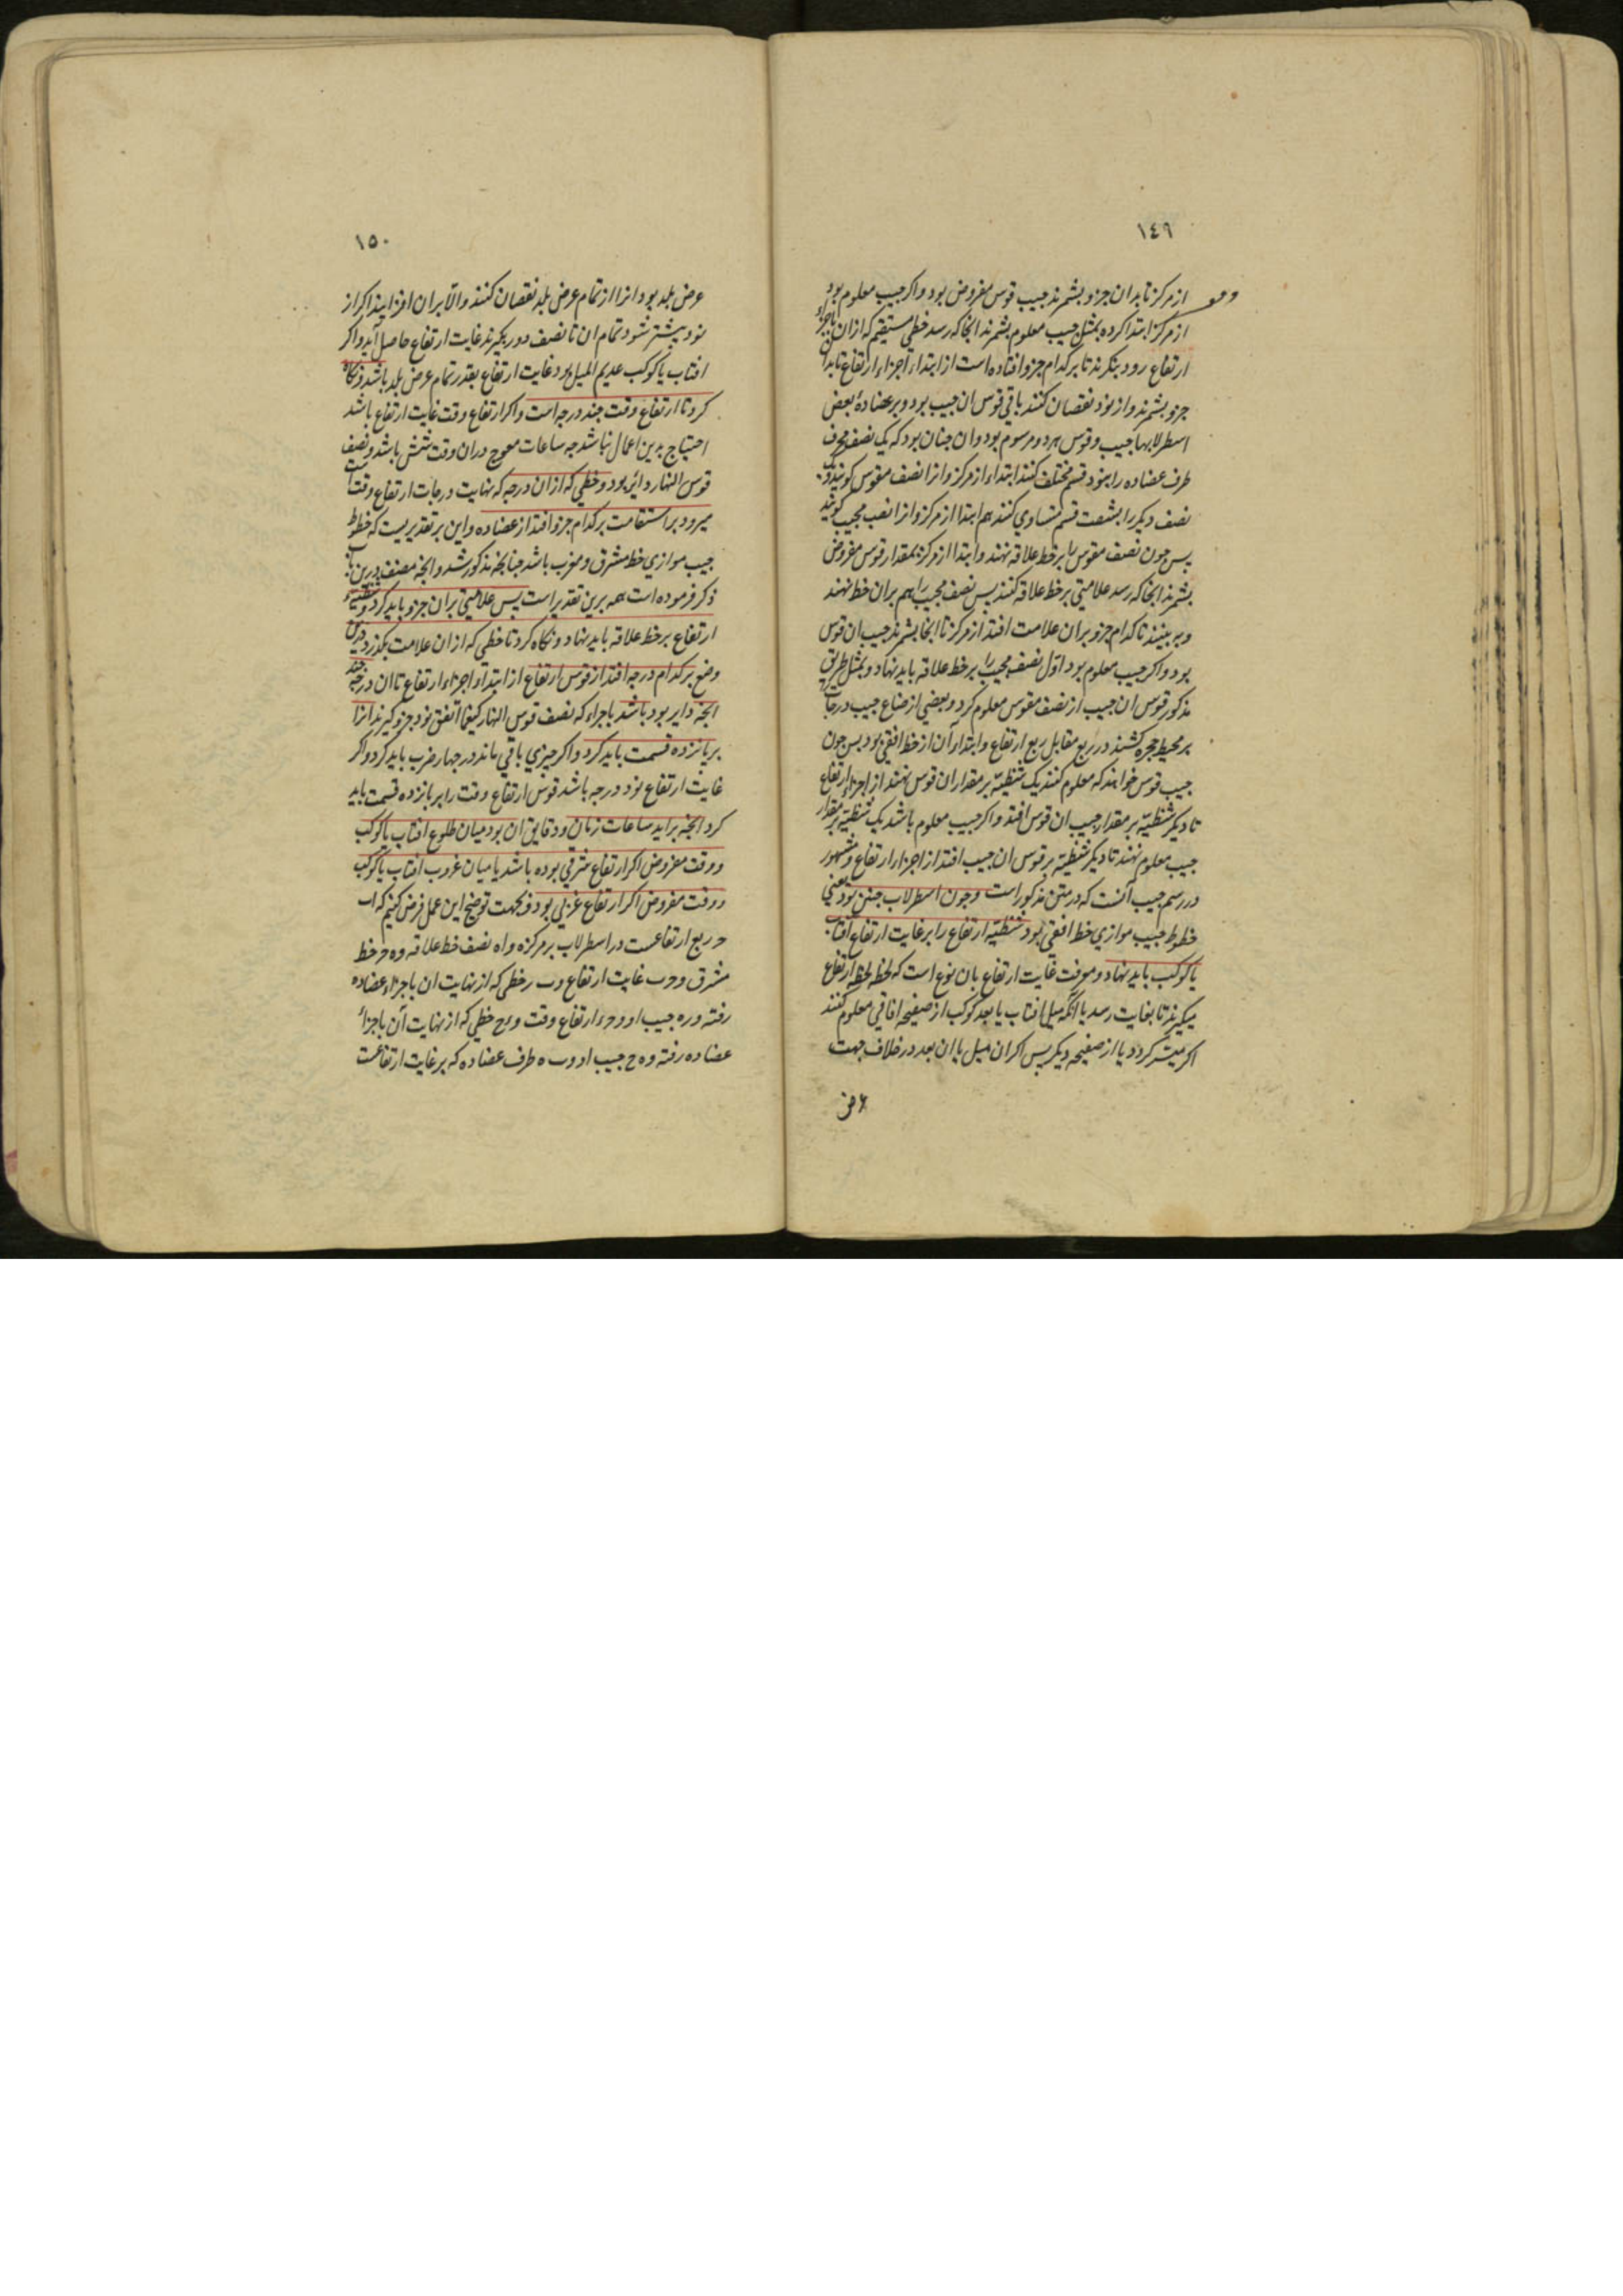 ١٤٩
از مرکز تا بدان جزو بشمرند جیب قوس مفروض بود و اکر جیب معلوم بود
از مرکز ابتدا کرده بمثل جیب معلوم بشمرند انجا که رسد خطی مستقیم که از ان باجزاء
ارتفاع رود بنکرند تا بر کدام جزو افتاده است از ابتداء اجزاء ارتفاع تا بدان
جزو بشمرند و از نود نقصان کنند باقی قوس ان جیب بود و بر عضادهٔ بعض
اسطرلابها جیب و قوس هر دو مرسوم بود و ان جنان بود که یک نصف محرف
طرف عضاده را بنود قسم مختلف کنند ابتداء از مرکز و انرا نصف مقوس کویند و
نصف دیکر را بشصت قسم متساوی کنند هم ابتدا از مرکز و انرا نصف مجیب کویند
بس جون نصف مقوس را بر خط علاقه نهند و ابتدا از مرکز بمقدار قوس مفروض
بشمرند انجا که رسد علامتی بر خط علاقه کنند بس نصف مجیب را هم بران خط نهند
و ببینند تا کدام جزو بران علامت افتد از مرکز تا انجا بشمرند جیب ان قوس
بود و اکر جیب معلوم بود اوّل نصف مجیب را بر خط علاقه باید نهاد و بمثل طریق
مذکور قوس ان جیب از نصف مقوس معلوم کرد و بعضی از صناع جیب درجات
بر محیط حجره کشند در ربع مقابل ربع ارتفاع و ابتداء ان از خط افقی بود بس جون
جیب قوس خواهند که معلوم کنند یک شظیّه بر مقدار ان قوس نهند از اجزاء ارتفاع
تا دیکر شظیّه بر مقدار جیب ان قوس افتد و اکر جیب معلوم باشد یک شظیّه بر مقدار
جیب معلوم نهند تا دیکر شظیّه بر قوس ان جیب افتد از اجزاء ارتفاع و مشهور
در رسم جیب آنست که در متن مذکور است و جون اسطرلاب جنین بود یعنی
خطوط جیب موازی خط افقی بود شظیّه ارتفاع را بر غایت ارتفاع افتاب
یا کوکب باید نهاد و معرفت غایت ارتفاع بان نوع است که لحظه لحظه ارتفاع
میکیرند تا بغایت رسد یا انکه میل افتاب یا بعد کوکب از صفیحه افاقی معلوم کنند
اکر میسّر کردد یا از صفیحه دیکر بس اکر ان میل یا ان بعد در خلاف جهت
عرض
١٥٠
عرض بلد بود انرا از تمام عرض بلد نقصان کنند والّا بران افزایند اکر از
نود بیشتر شود تمام ان تا نصف دور بکیرند غایت ارتفاع حاصل آید و اکر
افتاب یا کوکب عدیم المیل بود غایت ارتفاع بقدر تمام عرض بلد باشد و نکاه
کرد تا ارتفاع وقت جند درجه است و اکر ارتفاع وقت غایت ارتفاع باشد
احتیاج بدین اعمال نباشد جه ساعات معوج دران وقت شش باشد و نصف
قوس النهار دائر بود و خطی که از ان درجه که نهایت درجات ارتفاع وقت است
میرود بر استقامت بر کدام جزو افتد از عضاده و این بر تقدیریست که خطوط
جیب موازی خط مشرق و مغرب باشد جنانجه مذکور شد و انجه مصنف درین باب
ذکر فرموده است همه برین تقدیر است بس علامتی بران جزو باید کرد و شظیّهٔ
ارتفاع بر خط علاقه باید نهاد و نکاه کرد تا خطی که از ان علامت بکذرد درین
وضع بر کدام درجه افتد از قوس ارتفاع از ابتداء اجزاء ارتفاع تا ان درجه جند
انجه دایر بود باشد باجزاء که نصف قوس النهار کیفما اتفق نود جزو کیرند انرا
بر بانزده قسمت باید کرد و اکر جیزی باقی ماند در جهار ضرب باید کرد و اکر
غایت ارتفاع نود درجه باشد قوس ارتفاع وقت را بر بانزده قسمت باید
کرد انجه براید ساعات زمانی و دقایق ان بود میان طلوع افتاب یا کوکب
و وقت مفروض اکر ارتفاع شرقی بوده باشد یا میان غروب افتاب یا کوکب
و وقت مفروض اکر ارتفاع غربی بود و بجهت توضیح این عمل فرض کنیم که اب
ح ربع ارتفاعست در اسطرلاب بر مرکز ه و اه نصف خط علاقه و ه ح خط
مشرق و ح ب غایت ارتفاع و ب ر خطی که از نهایت ان باجزاء عضاده
رفته و ر ه جیب او و ح ء ارتفاع وقت و ء ح خطی که از نهایت آن باجزاء
عضاده رفته و ه ح جیب او و ب ه طرف عضاده که بر غایت ارتفاعست